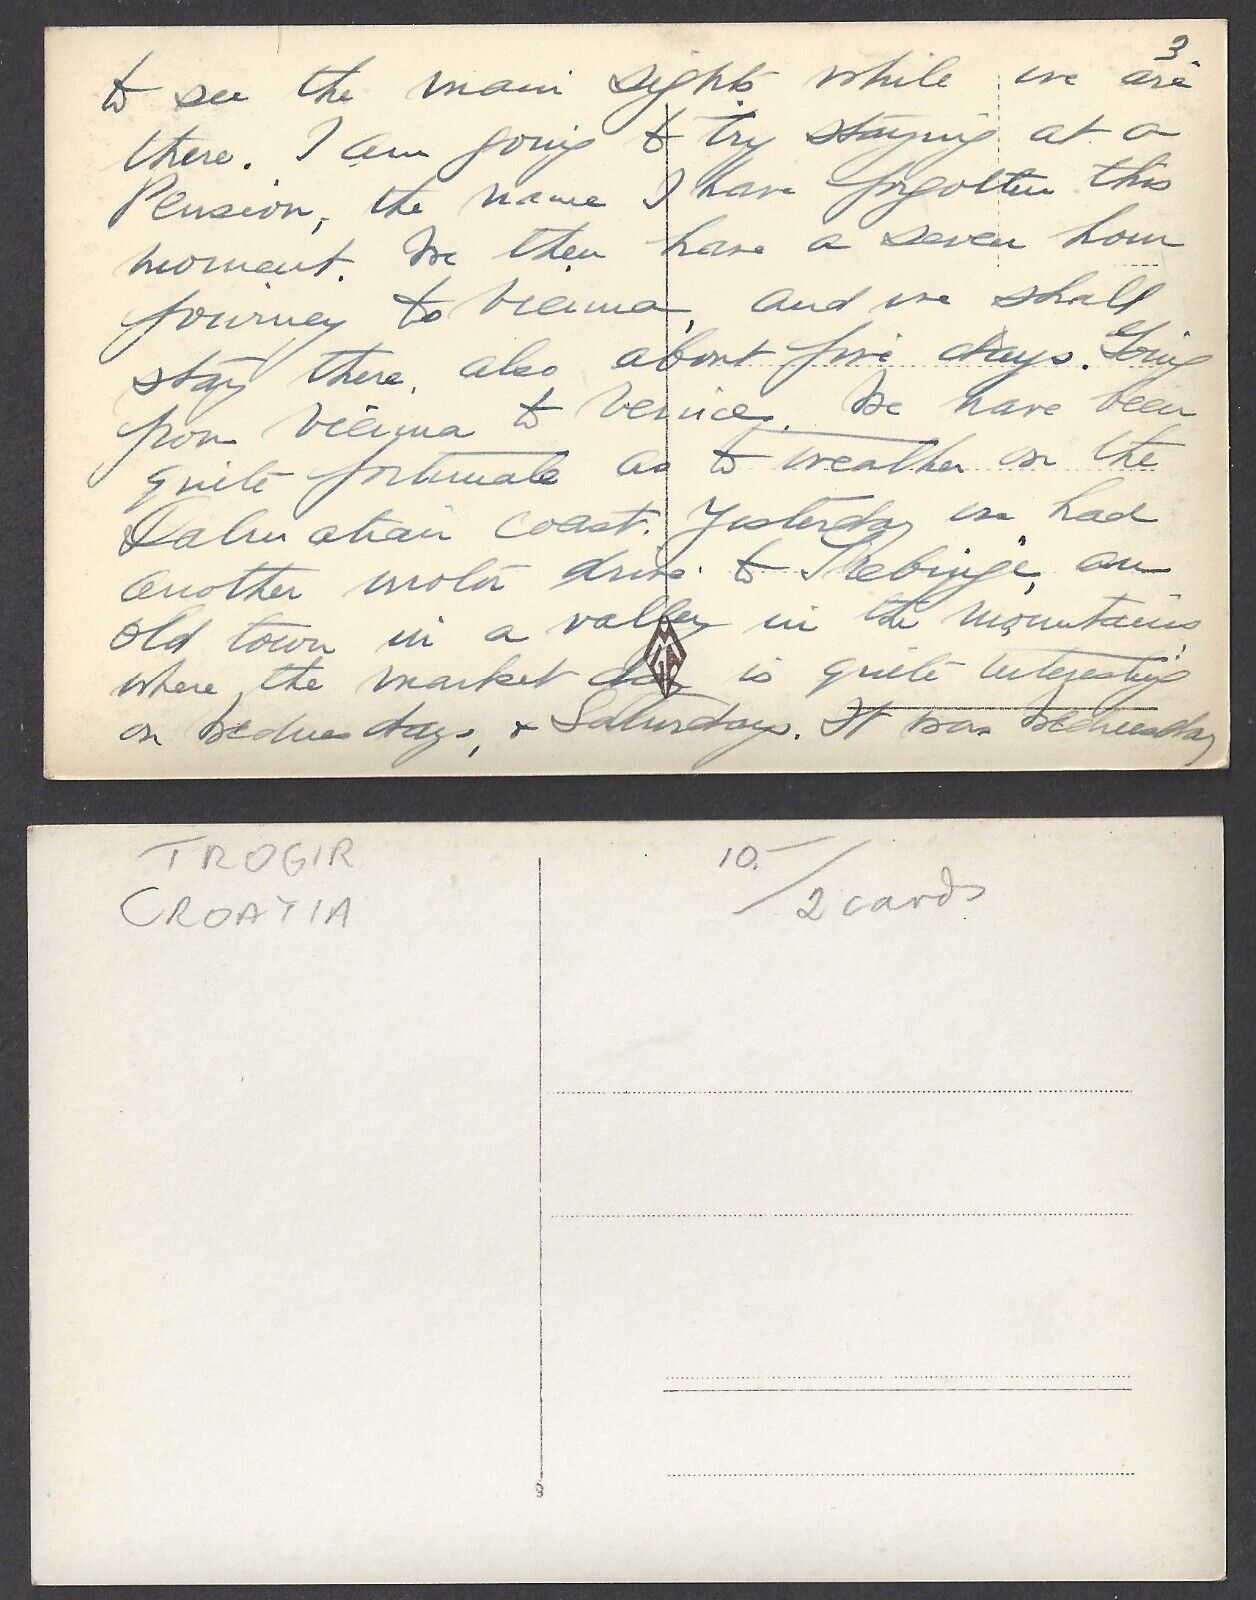 3
to see the main sights while we are
there. I am going to try staying at a
Pension, the name I have forgotten this
moment. We then have a seven hour
journey to Vienna, and we shall
stay there, also about five days. Going
from Vienna to Venice. We have been
quite fortunate as to weather on the
Dalmatian coast. Yesterday we had
another motor drive to Trebinje, an
old town in a valley in the mountains
where the market day is quite interesting
on Wednesdays, & Saturdays. It was Wednesday
TROGIR
CROATIA
10.-/2 cards
8